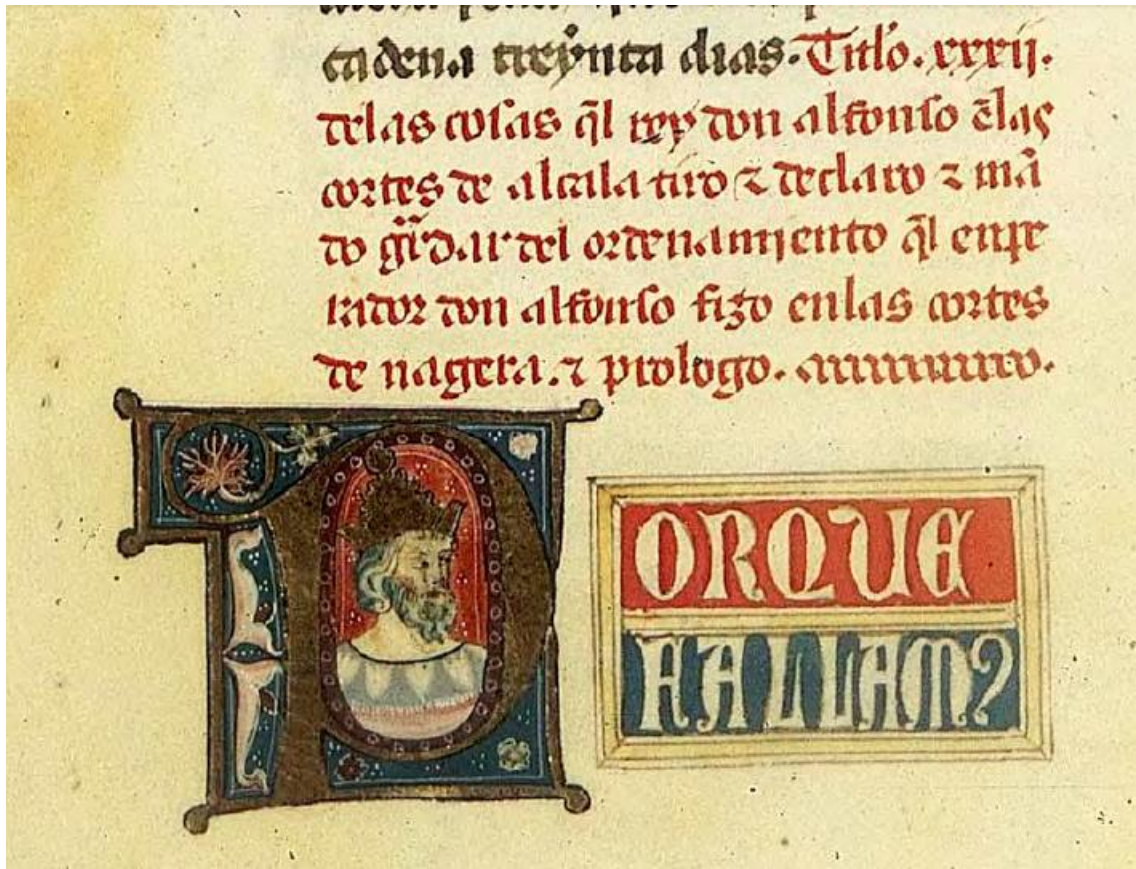 cadena treynta dias. Titlo. xxxij.
delas cosas q̃l rey don alfonso ẽlas
cortes de alcala tiro ⁊ declaro ⁊ mã
do gͥdar del ordenamiento q̃l enpe
rador don alfonso fizo enlas cortes
de nagera. ⁊ prologo.
PORQUE
FALLAMO